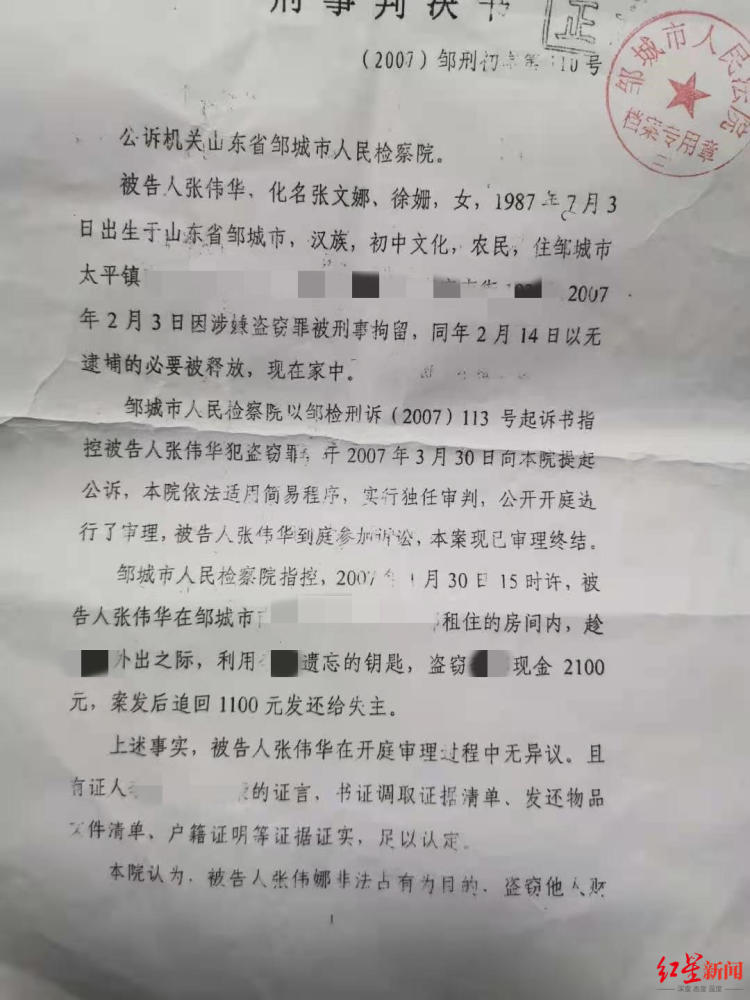 刑事判决书
正
(2007)邹刑初 第110号
邹城市人民法院
档案专用章
公诉机关山东省邹城市人民检察院。
被告人张伟华、化名张文娜、徐姗,女,1987年7月3
日出生于山东省邹城市,汉族,初中文化,农民,住邹城市
太平镇 2007
年2月3日因涉嫌盗窃罪被刑事拘留,同年2月14日以无
逮捕的必要被释放,现在家中。
邹城市人民检察院以邹检刑诉(2007)113号起诉书指
控被告人张伟华犯盗窃罪,于2007年3月30日向本院提起
公诉,本院依法适用简易程序,实行独任审判,公开开庭进
行了审理,被告人张伟华到庭参加诉讼,本案现已审理终结。
邹城市人民检察院指控,2007年1月30日15时许,被
告人张伟华在邹城市 租住的房间内,趁
外出之际,利用 遗忘的钥匙,盗窃 现金2100
元,案发后追回1100元发还给失主。
上述事实,被告人张伟华在开庭审理过程中无异议。且
有证人 的证言,书证调取证据清单、发还物品
文件清单、户籍证明等证据证实,足以认定。
本院认为,被告人张伟娜非法占有为目的,盗窃他人财
1
红星新闻
深度 态度 温度